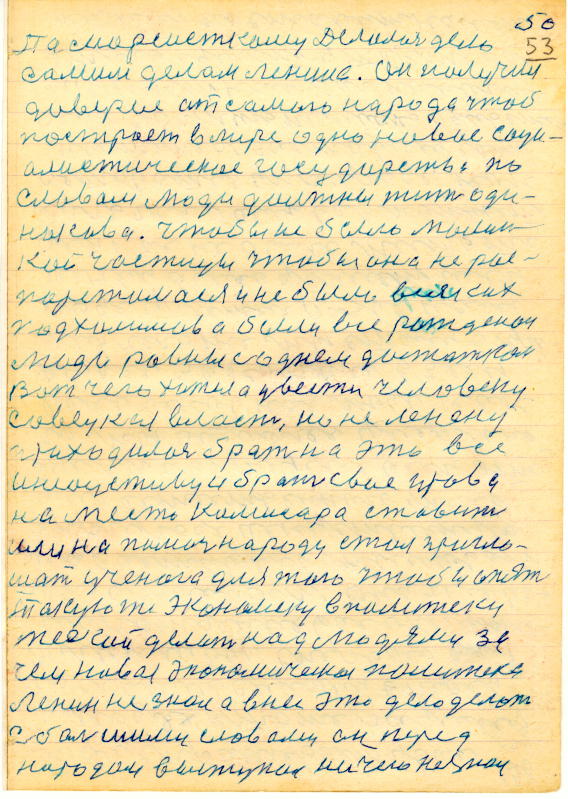 50
53
По марсистскому Делолоя дель
самим делам Ленина. Он получил
доверие от самого народа чтоб
построет в мире одно новое соци-
алистическое государсть. По
словам люди должны жить оди-
накова. Чтобы не было мален-
кой частицы чтобы она не рас-
поряжалася и не было всяких
подхалимов а были все рожденаи
люди ровными с однем достатком
Вот чего хотела ввести человеку
советская власть, но не ленену
приходилоя брат на это все
инециативу и брат свое права
на место Комисара ставит
или на помоч народу стал пригло-
шат ученога для того чтобы опят
Такую ти экономеку в политеку
делат над людями за
чем новая экономическая политека
Ленин не знал а в нее это дело делат
з балшими словами он перед
народом выступал ничего не знал